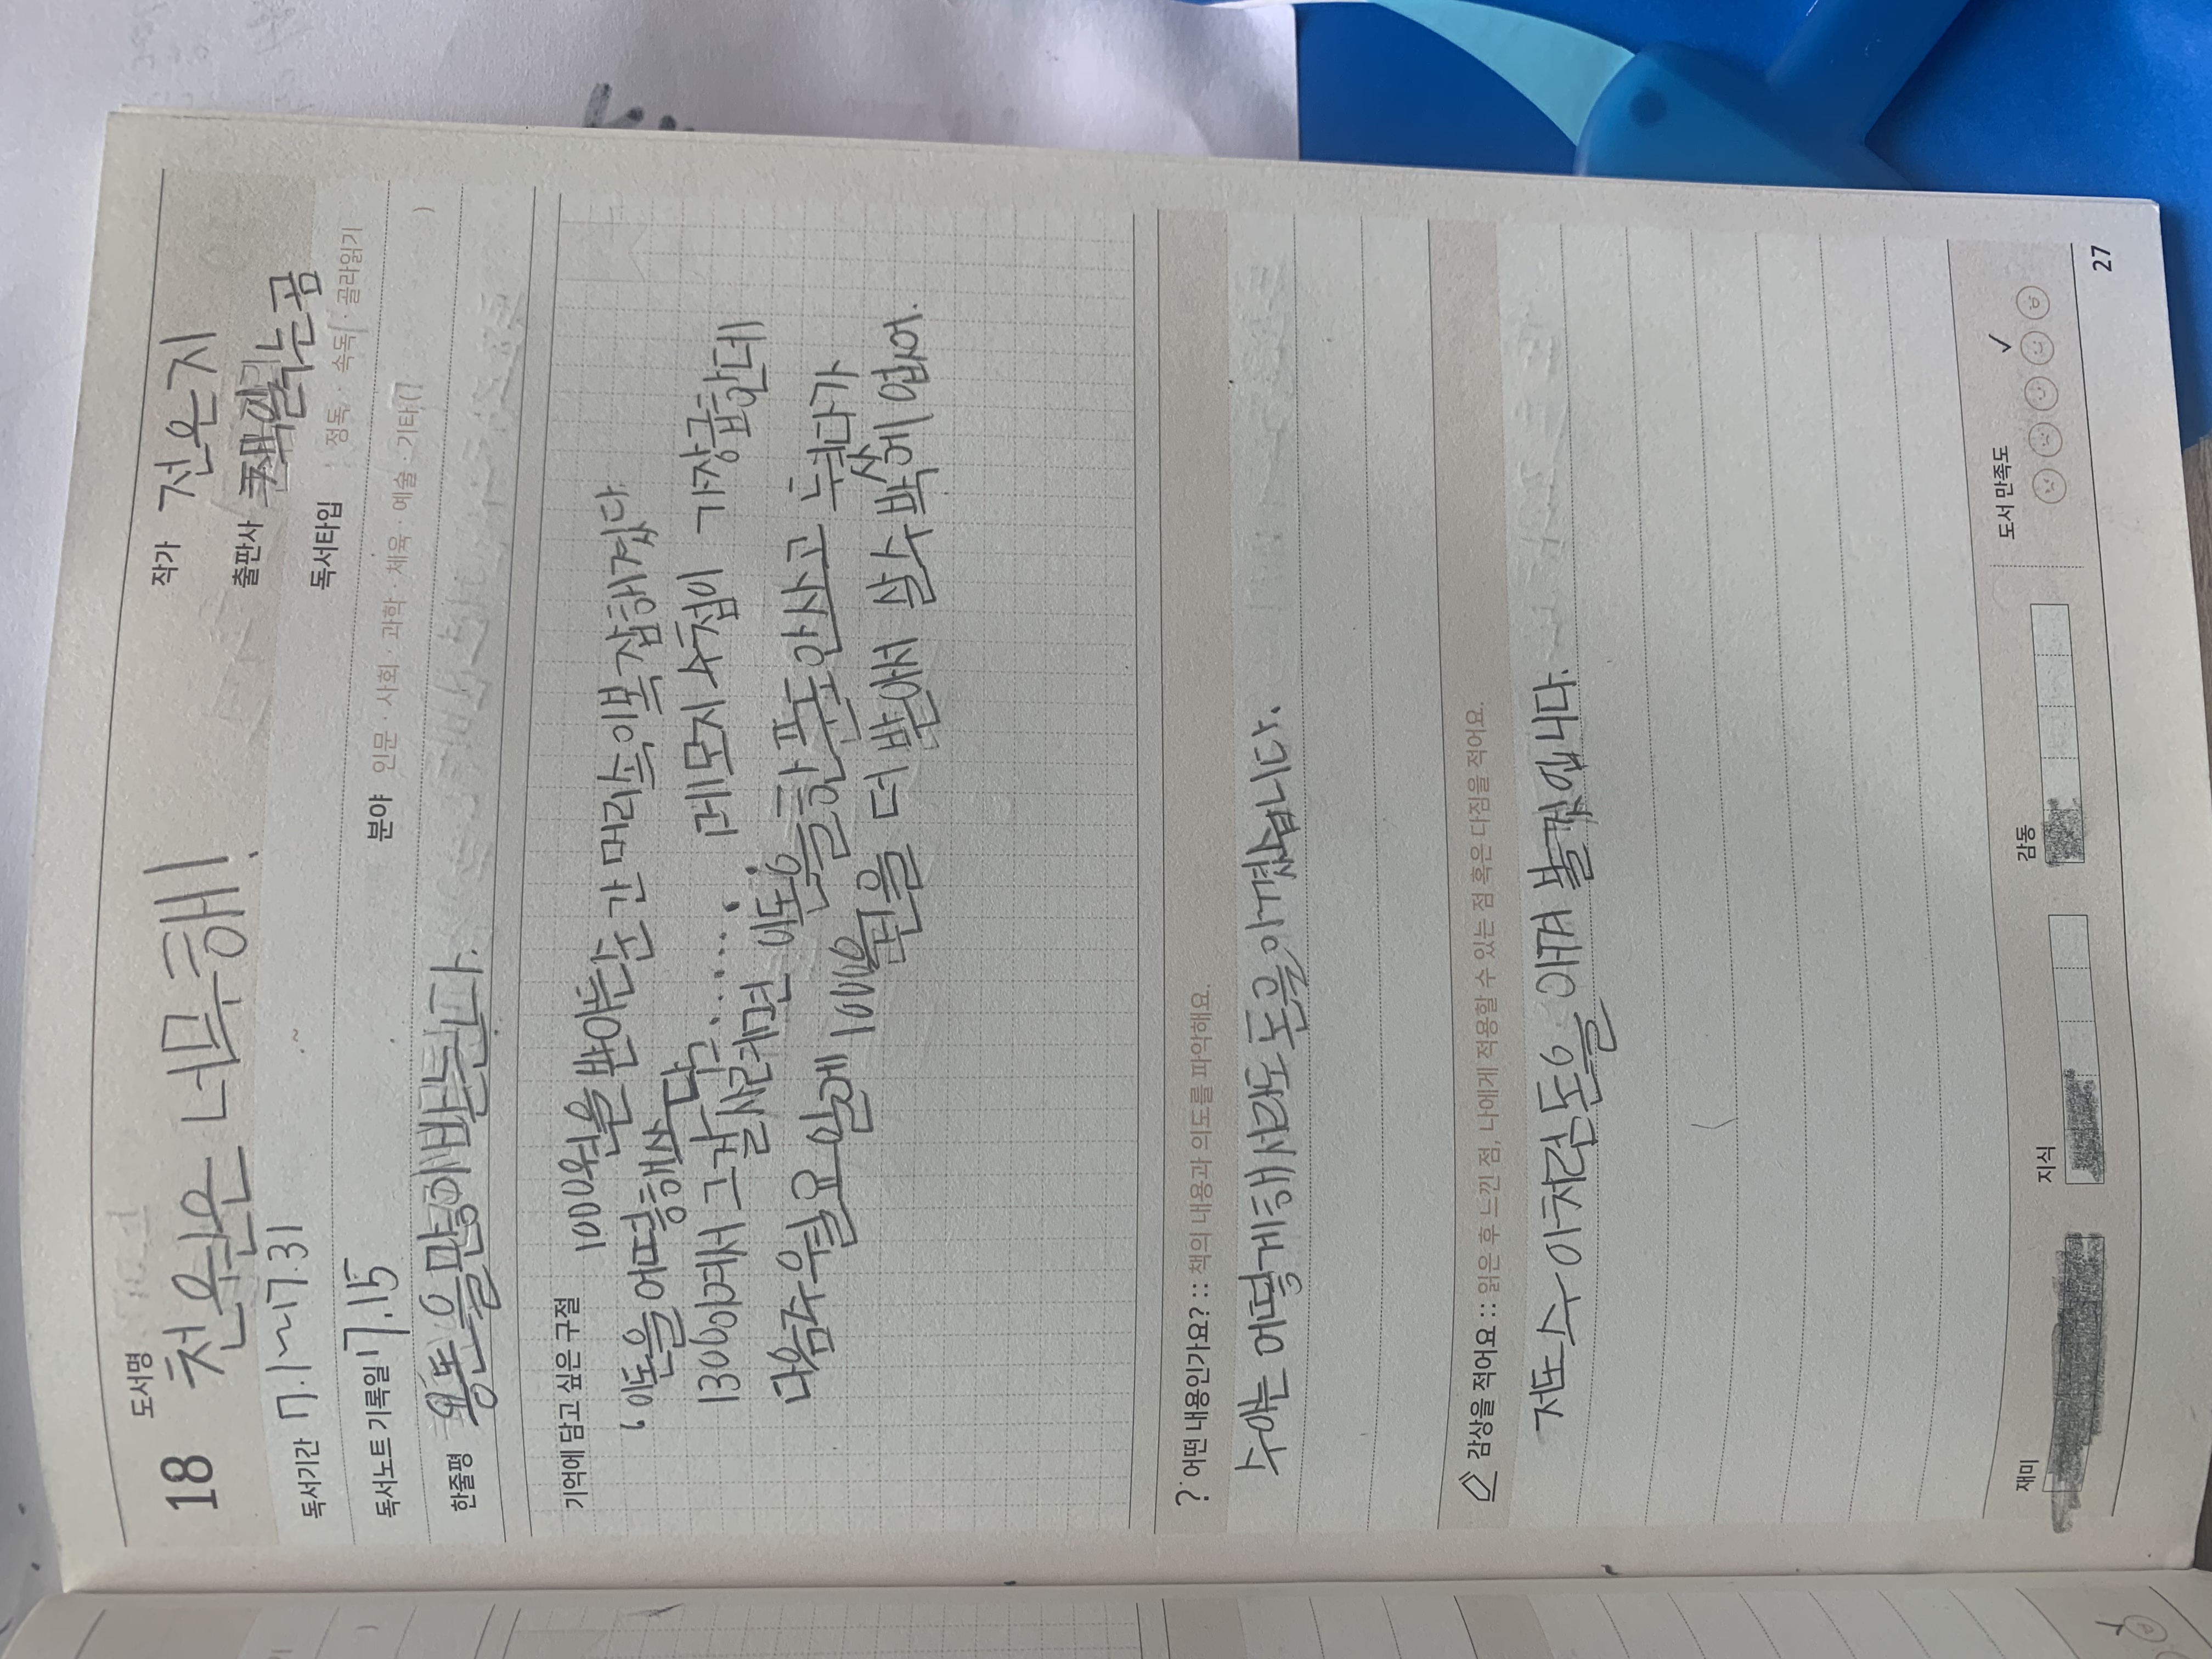 18 도서명 천원은 너무해!
작가 전은지
출판사 책읽는곰
독서기간 7.1~7.31
독서타입 정독 · 속독 · 골라읽기
독서노트 기록일 7.15
분야 인문 · 사회 · 과학 · 체육 · 예술 · 기타( )
한줄평 용돈을많이받는다.
기억에 담고 싶은 구절 1000원을 받아든순간 머리속이복잡해졌다.
'이돈을 어떻해쓰담......메모지 수첩이 가장급한데
1300이겨서 그걸사려면 이돈을한푼도안사고 뒀다가
다음주 월요일에 1000원을 더 받아서 살수박에 없어.
쓰
? 어떤 내용인가요? :: 책의 내용과 의도를 파악해요.
수아는 어떻게해서라도 돈을아꼈습니다.
감상을 적어요 :: 읽은 후 느낀 점, 나에게 적용할 수 있는 점 혹은 다짐을 적어요.
저도 수아처럼돈을 아껴 볼것입니다.
재미
지식
감동
도서 만족도
27